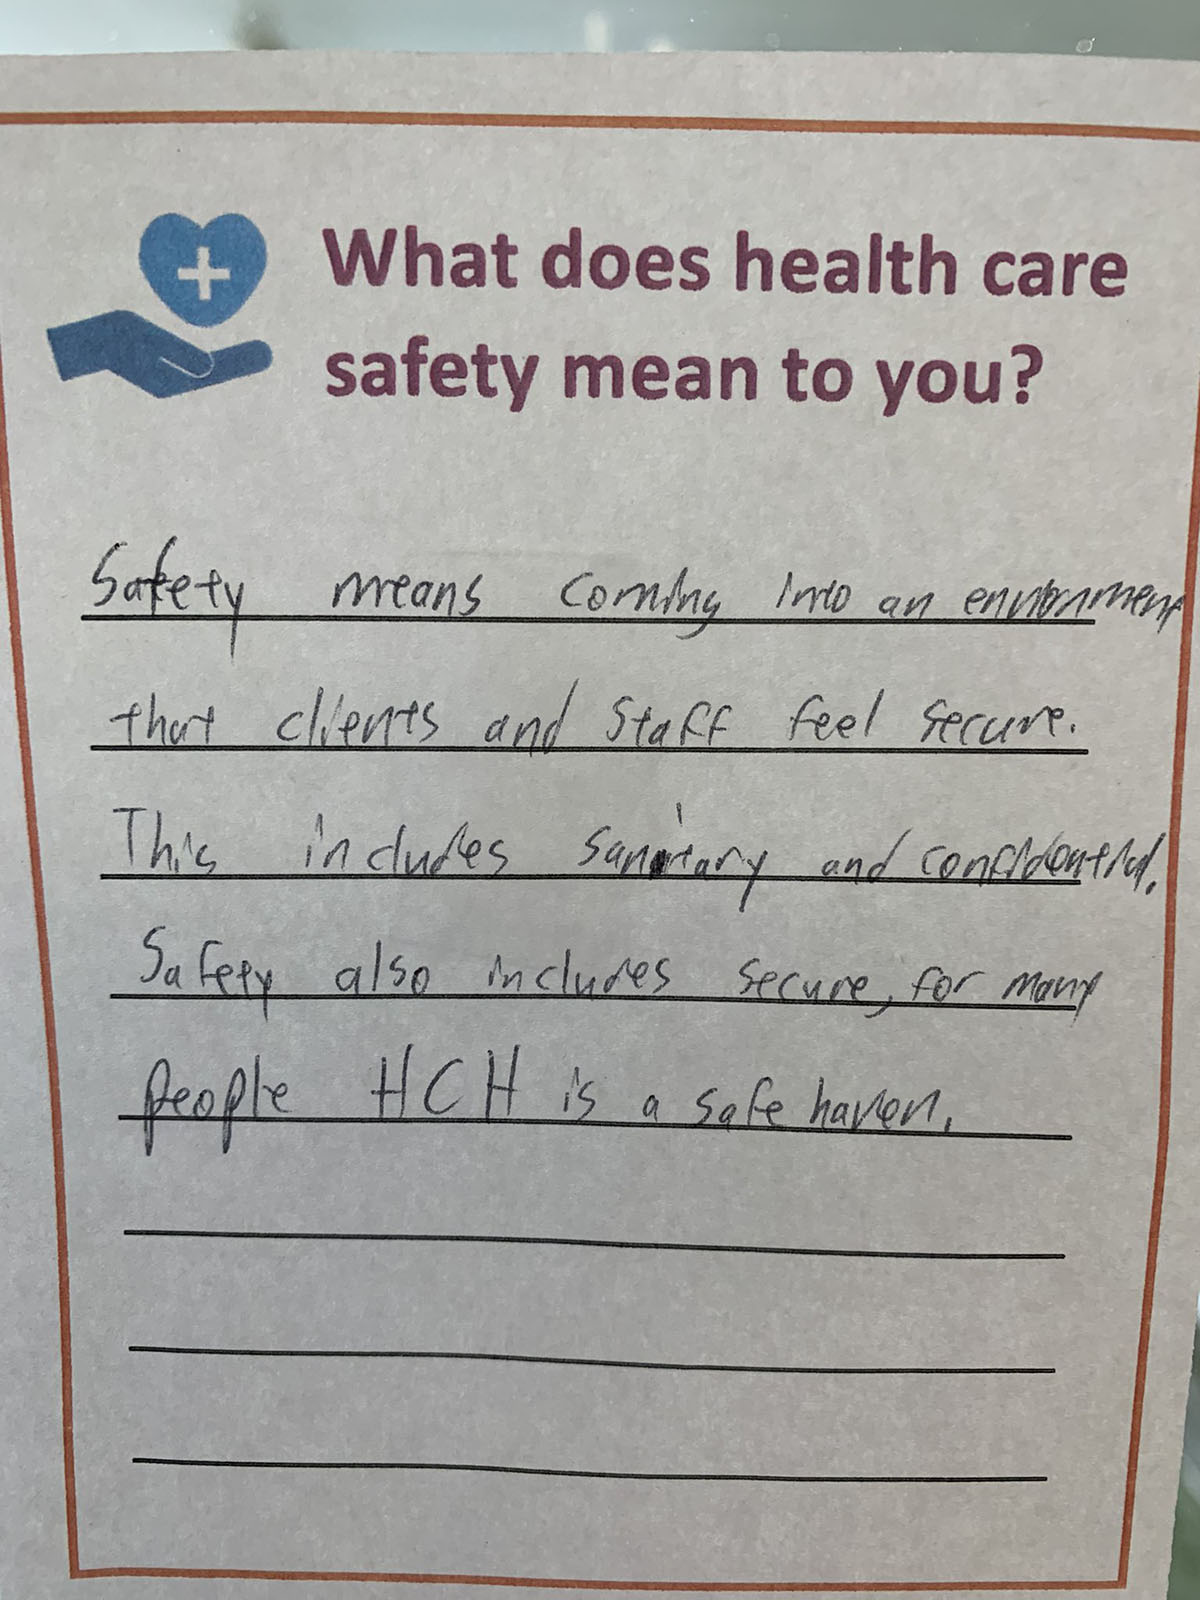 What does health care
safety mean to you?
Safety means coming into an environment
that clients and staff feel secure.
This includes sanitary and confidential.
Safety also includes secure, for many
people HCH is a safe haven.